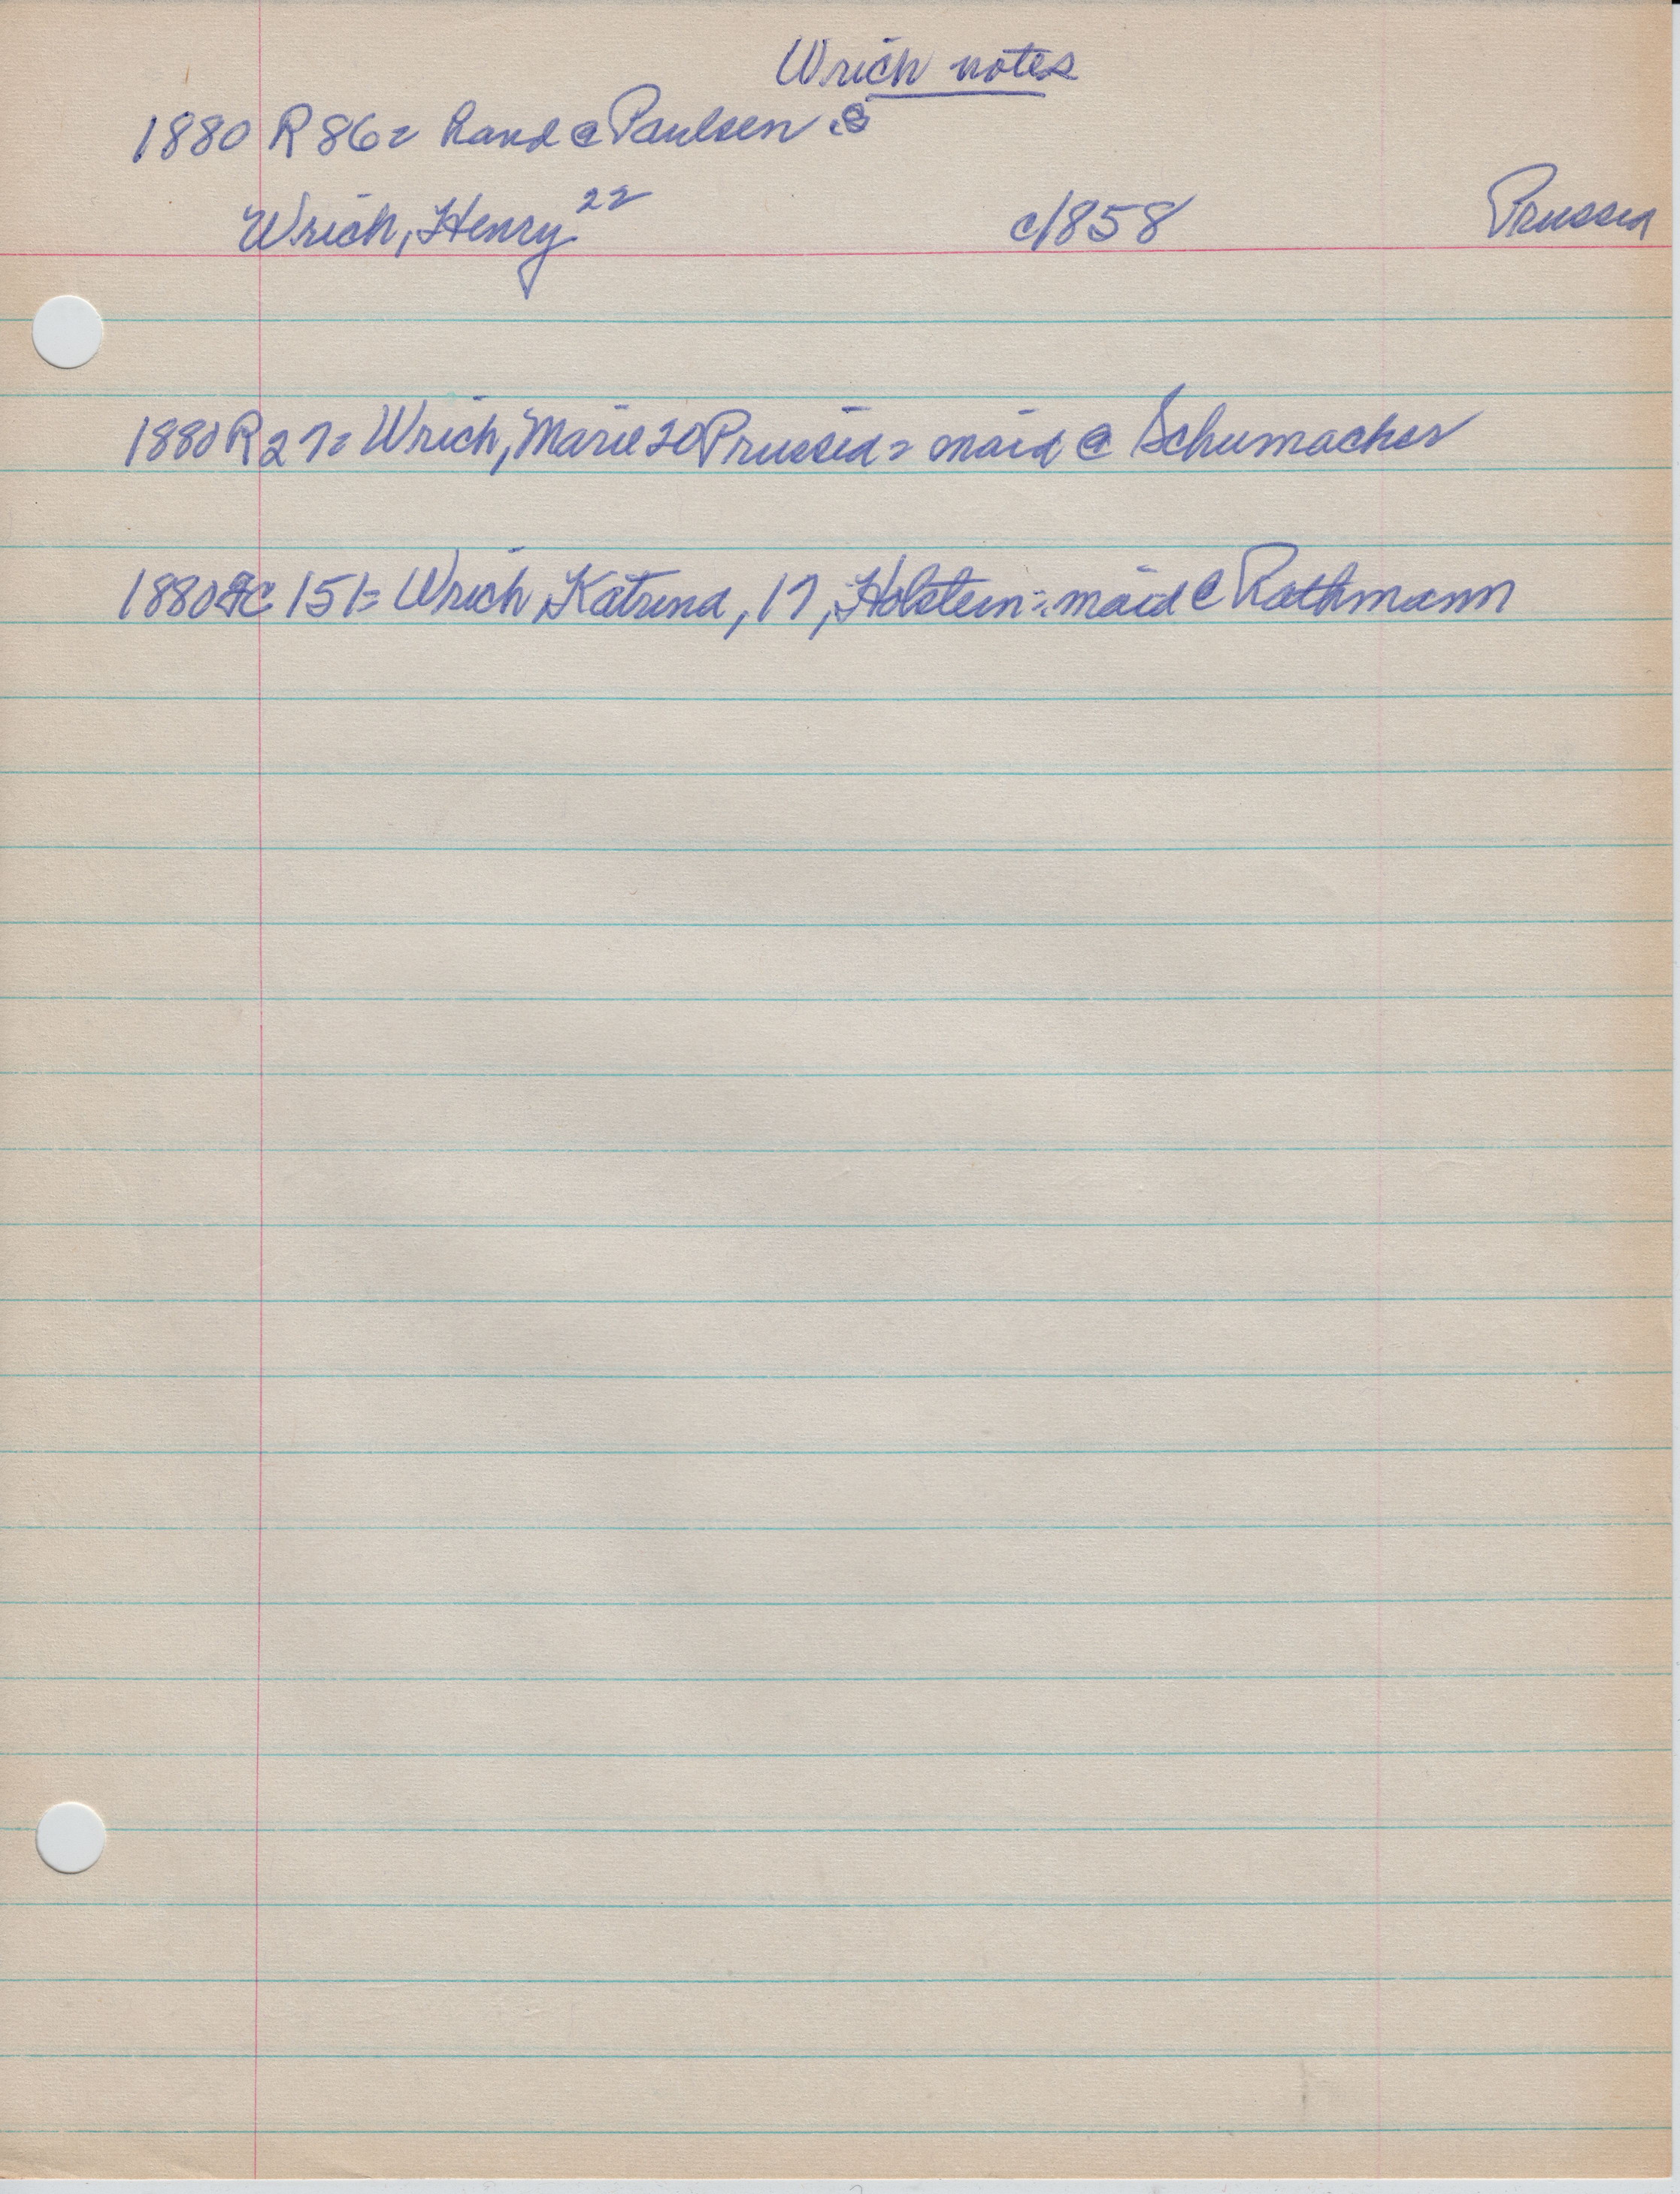 Wrich notes
1880 R 86= hand @ Paulsen
Wrich, Henry 22 c1858 Prussia
1880 R 27= Wrich, Marie 20 Prussia= maid @ Schumacher
1880 151= Wrich Katrina, 17, Holstein: maid @ Rathmann